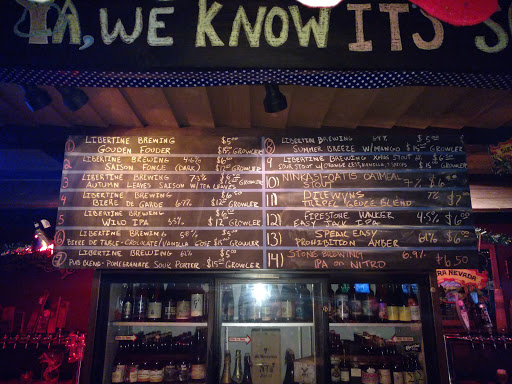 YA, WE KNOW IT'S
1 LIBERTINE BREWING $5.00
GOUDEN FODDER $15 GROWLER
2 LIBERTINE BREWING 4.6% $6
SAISON FONCE (DARK) $15 GROWLER
3 LIBERTINE BREWING 7.3% $5
AUTUMN LEAVES SAISON W/TEA LEAVES $15 GROWLER
4 LIBERTINE BREWING $6
BIERE DE GARDE 6.7% $12 GROWLER
5 LIBERTINE BREWING $6
WILD IPA 5.5% $12 GROWLER
6 LIBERTINE BREWING 5.8% $5.00
BIERE DE TABLE - CHOCOLATE/VANILLA GOSE $15 GROWLER
7 LIBERTINE BREWING 6.1% $
PUB BLEND - POMEGRANATE SOUR PORTER $15 GROWLER
8 LIBERTINE BREWING 6.9% $5.00
SUMMER BREEZE W/MANGO $15 GROWLER
9 LIBERTINE BREWING XMAS STOUT $6.00
SOUR STOUT W/ORANGE ZEST, VANILLA, SPICES $15 GROWLER
10) NINKASI-OATIS OATMEAL
STOUT 7% $6.00
11) DUE WINS
7% $7
12) FIRESTONE WALKER 4.5% $6.00
EASY JACK IPA
13) SPEAK EASY 6.1% $6.00
PROHIBITION AMBER
14) STONE BREWING 6.9%
IPA ON NITRO $6.50
RA NEVADA